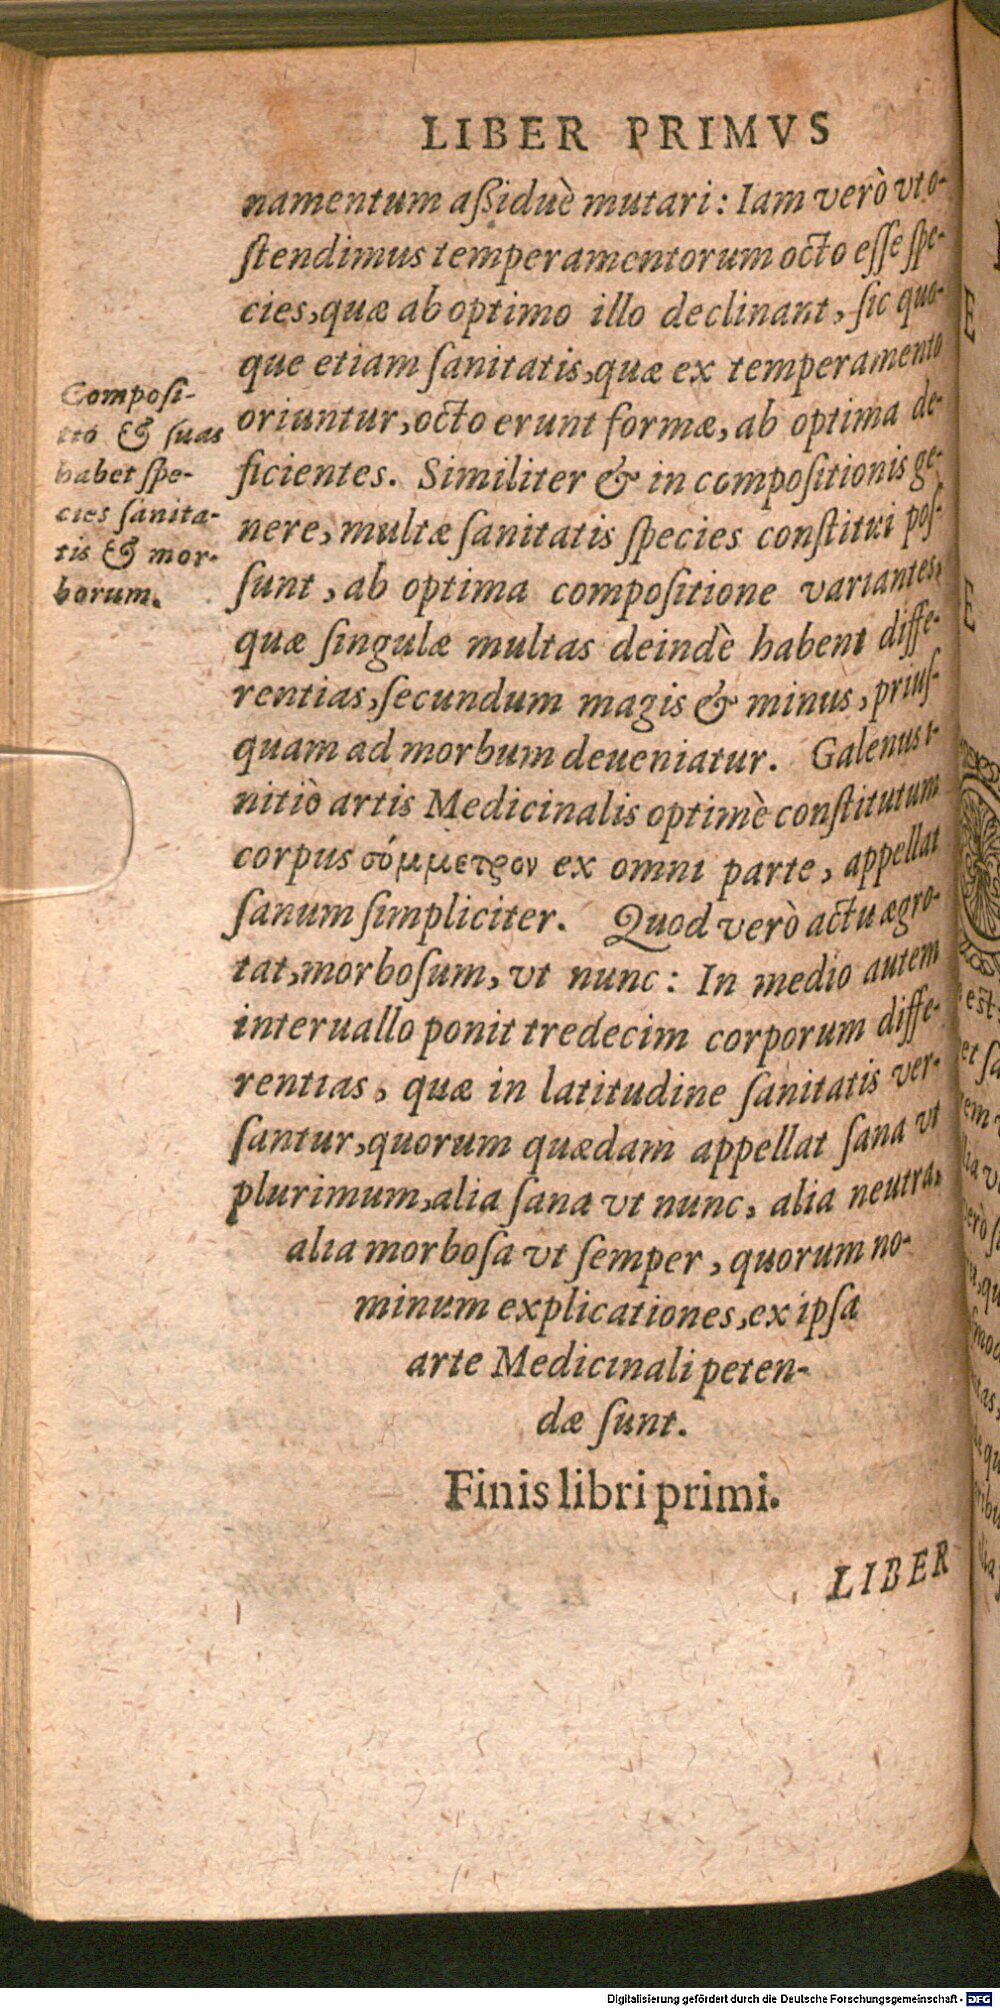 LIBER PRIMVS
namentum aßiduè mutari: Iam verò vt o-
ſtendimus temperamentorum octo eſſe ſpe-
cies, quæ ab optimo illo declinant, ſic quo-
que etiam ſanitatis, quæ ex temperamento
oriuntur, octo erunt formæ, ab optima de-
ficientes. Similiter & in compoſitionis ge-
nere, multæ ſanitatis ſpecies conſtitui poſ-
ſunt, ab optima compoſitione variantes,
quæ ſingulæ multas deindè habent diffe-
rentias, ſecundum magis & minus, priuſ-
quam ad morbum deueniatur. Galenus i-
nitiò artis Medicinalis optimè conſtitutum
corpus σύμμετρον ex omni parte, appellat
ſanum ſimpliciter. Quod verò actu ægro-
tat, morboſum, vt nunc: In medio autem
interuallo ponit tredecim corporum diffe-
rentias, quæ in latitudine ſanitatis ver-
ſantur, quorum quædam appellat ſana vt
plurimum, alia ſana vt nunc, alia neutra,
alia morboſa vt ſemper, quorum no-
minum explicationes, ex ipſa
arte Medicinali peten-
dæ ſunt.
Finis libri primi.
LIBER
Compoſi-
tio & ſuas
habet ſpe-
cies ſanita-
tis & mor-
borum.
Digitalisierung gefördert durch die Deutsche Forschungsgemeinschaft - DFG